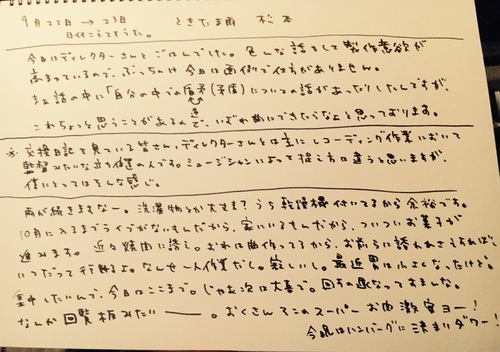 9月22日 → 23日 ときたま雨 松本
日付こえてもうた。
今日はディレクターさんとごはんでした。色んな話をして製作意欲が
高まっているので、ぶっちゃけ今日は面倒で仕方がありません。
まぁ話の中に「自分の中での についての話があったりしたんですが、
逆
これちょっと思うことがあるんで、いずれ曲にできたらなぁと思っております。
※交換日記を見ている皆さん、ディレクターさんとは主にレコーディング作業において
監督みたいな立ち位置の人です。ミュージシャンによって捉え方は違うと思いますが、
俺にとってはそんな感じ。
雨が続きますなー。洗濯物とか大丈夫?うち乾燥機付いてるから余裕です。
10月に入るまでライブがないもんだから、家にいるもんだから、ついついお菓子が
進みます。近々焼肉に誘え。おれは曲作ってるから、お前らに誘われさえすれば、
いつだって行けるよ。なんせ一人作業だし。寂しいし。最近胃は小さくなったけど。
集中したいんで、今日はここまで。じゃぁ次は大喜で。 遅なってすまんな。
なんか回覧板みたいー。おくさんそこのスーパーお肉激安ヨー!
今晩はハンバーグに決まりダワー!